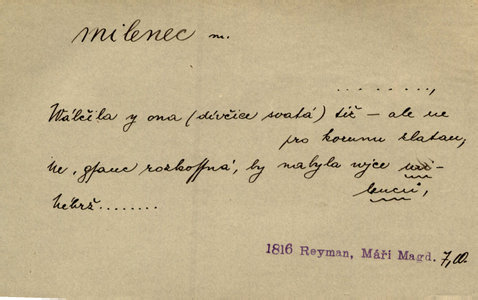 milenec m.
. . . . . . . . ,
Wálčila y ona (divčice swatá) též – ale ne
pro korunu zlatau,
ne, gsauc rozkossná, by nabyla wjce mi-
lenců,
nébrž........
1816 Reyman, Máří Magd. 7,00.